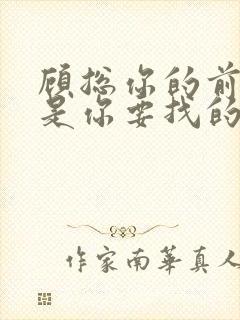 顾总你的前
是你要找的
作家南華真人